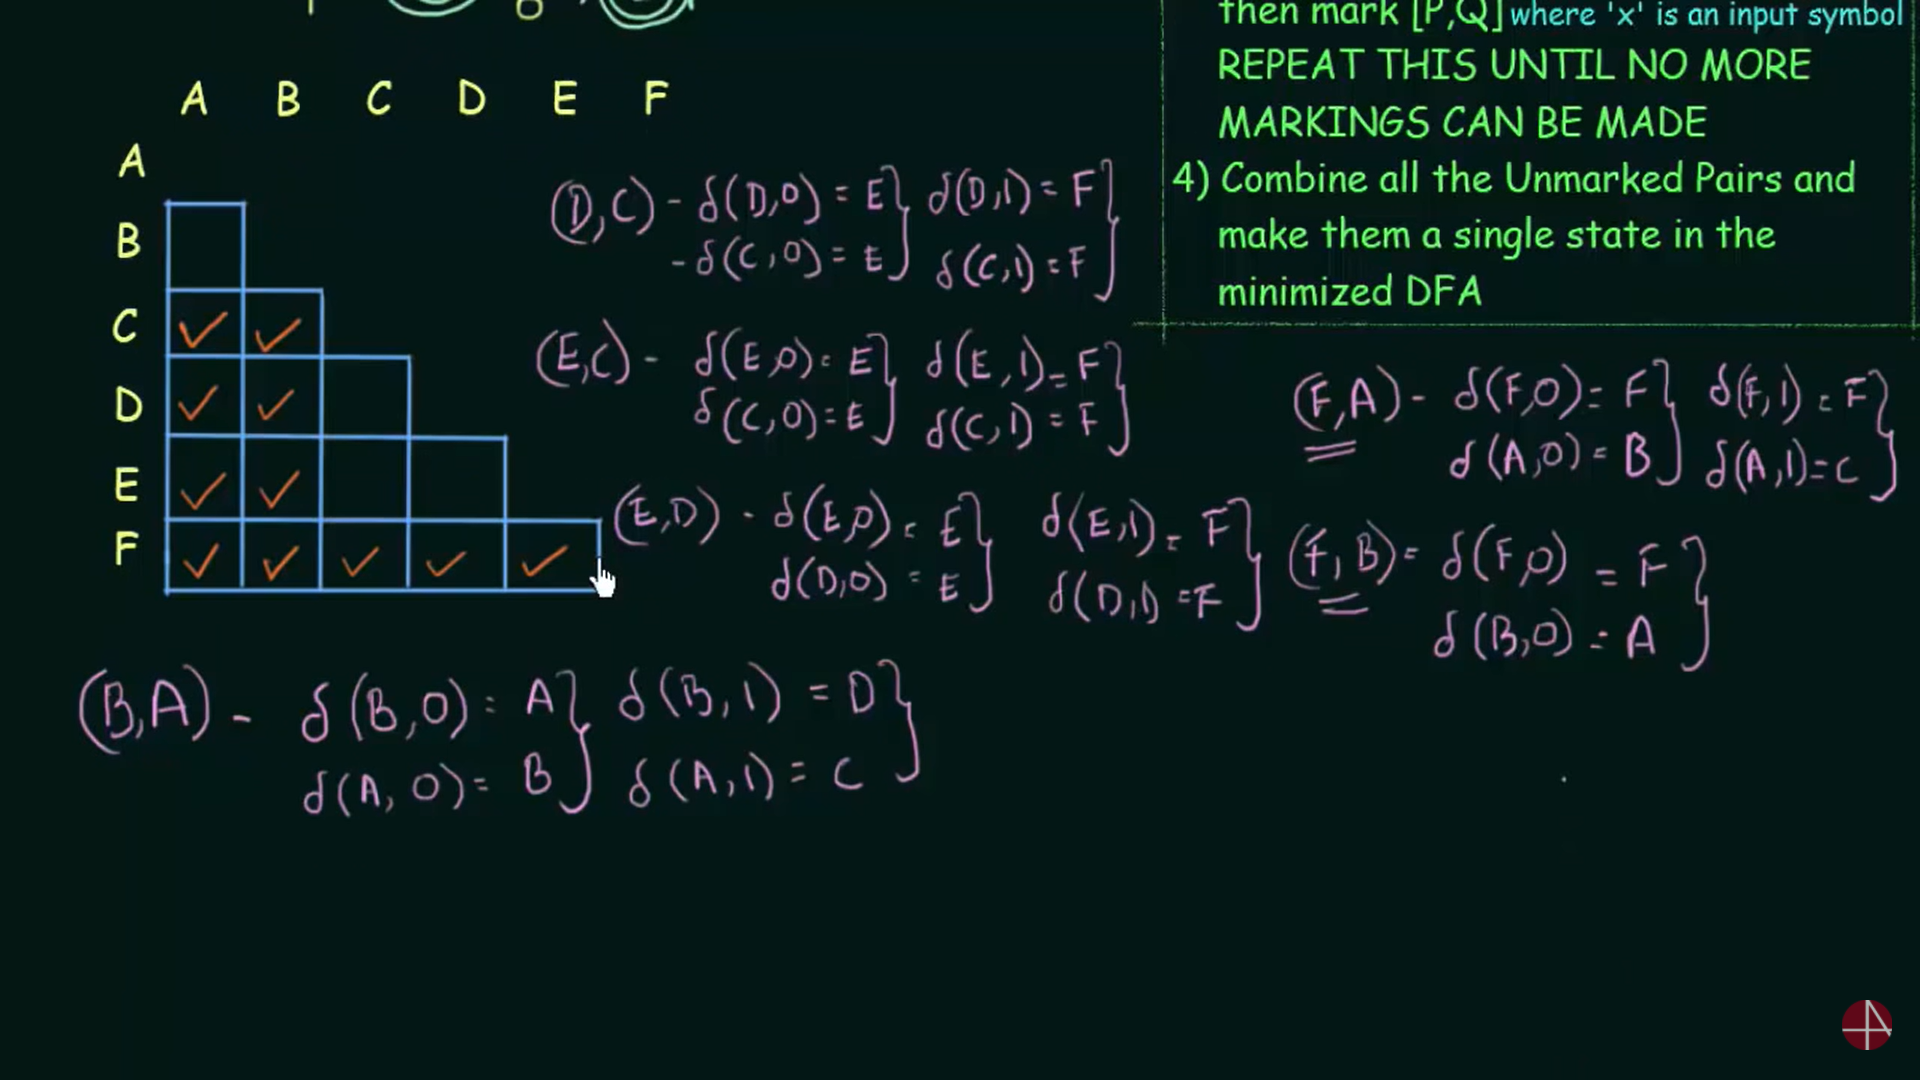 then mark [P,Q] where 'x' is an input symbol
REPEAT THIS UNTIL NO MORE
MARKINGS CAN BE MADE
4) Combine all the Unmarked Pairs and
make them a single state in the
minimized DFA
A B C D E F
A
B
C ✓ ✓
D ✓ ✓
E ✓ ✓
F ✓ ✓ ✓ ✓ ✓
(D,C) - δ(D,0) = E } δ(D,1) = F }
- δ(C,0) = E } δ(C,1) = F }
(E,C) - δ(E,0) = E } δ(E,1) = F }
δ(C,0) = E } δ(C,1) = F }
(E,D) - δ(E,0) = E } δ(E,1) = F }
δ(D,0) = E } δ(D,1) = F }
(F,A) - δ(F,0) = F } δ(F,1) = F }
δ(A,0) = B } δ(A,1) = C }
(F,B) = δ(F,0) = F }
δ(B,0) = A }
(B,A) - δ(B,0) = A } δ(B,1) = D }
δ(A,0) = B } δ(A,1) = C }